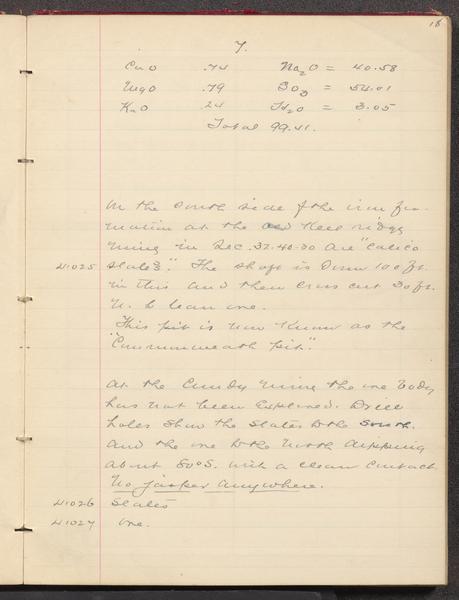 18
7.
CaO .74 Na2O = 40.58
MgO .79 SO3 = 54.01
K2O .24 H2O = 3.05
Total 99.41.
On the South side of the iron for-
mation at the old Keel ridge
mine in Sec. 32-40-30 are "Calico
41025 slates". The shaft is down 100 ft.
in this and then cross cut 30 ft.
N. to lean ore.
This pit is now known as the
"Commonwealth pit".
At the Cundy mine the ore body
has not been explored. Drill
holes show the slates to the south
and the ore to the north dipping
about 80° S. with a clean contact
No jasper anywhere.
41026 Slates
41027 ore.